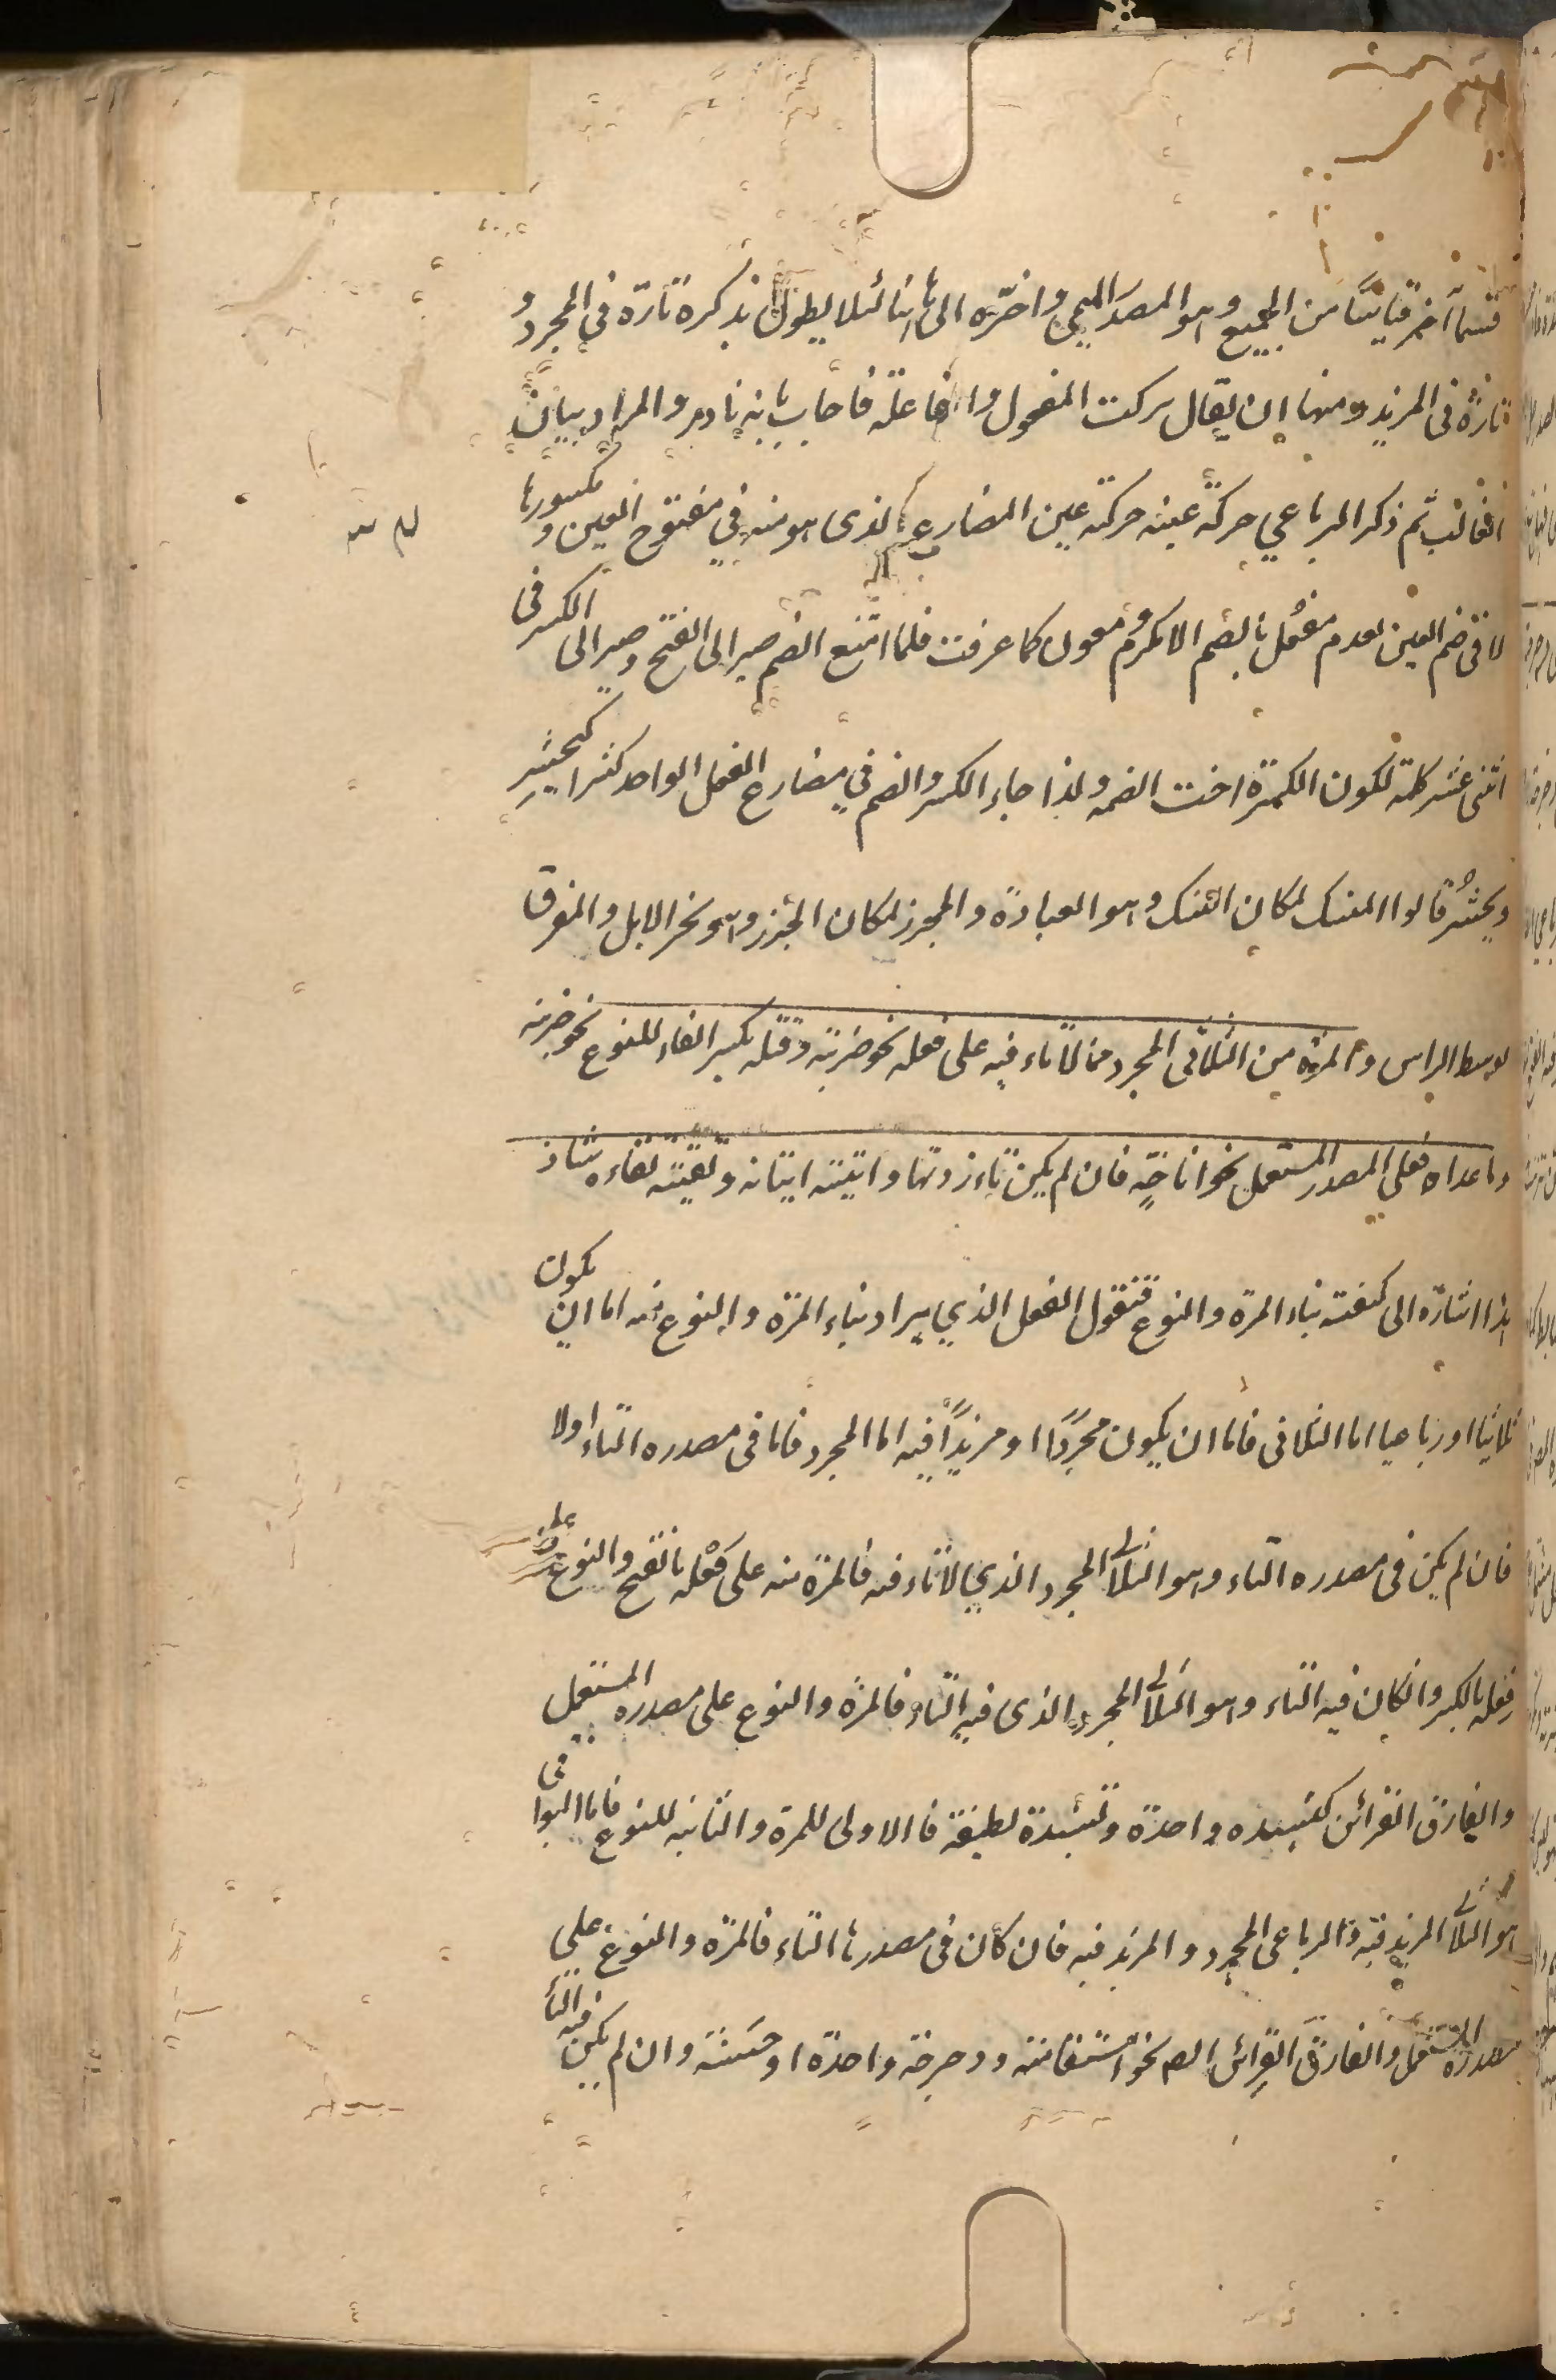 قسما آخر قياسيا من الجميع وهو المصدر الميمي واخره الى هاهنا لئلا يطول بذكره تارة في المجرد و
تارة في المزيد ومنها ان يقال تركت المفعول والفاعلة فاجاب بانه نادر والمراد بيان
الغالب ثم ذكر الرباعي حركة عينه حركة عين المضارع الذى هو منه في مفتوح العين و مكسورها
لا في ضم العين لعدم مفعل بالضم الا مكرم و معون كما عرفت فلما امتنع الضم صير الى الفتح وصير الى الكسر في
اثنى عشر كلمة لكون الكسرة اخت الضمه ولذا جاء الكسر والضم في مضارع الفعل الواحد كثيرا كيحشِر
ويحشُر قالوا المنسك لمكان النسك وهو العبادة والمجزر لمكان الجزر وهو نحر الابل والمفرق
لوسط الراس والمرة من الثلاثى المجرد مما لا تاء فيه على فعله نحو ضربة وقتله بكسر الفاء للنوع نحو ضربة
وما عداه فعلى المصدر المستعمل نحو اناخة فان لم يكن تاء زدتها واتيته اتيانه ولقيته لقاءه شاذ
هذا اشارة الى كيفية بناء المرة والنوع فنقول الفعل الذي يراد بناء المرة والنوع منه اما ان يكون
ثلاثيا او رباعيا اما الثلاثى فاما ان يكون مجردًا او مزيدًا فيه اما المجرد فاما فى مصدره التاء اولا
فان لم يكن فى مصدره التاء وهو الثلاثى المجرد الذي لا تاء فيه فالمرة منه على فَعْله بالفتح والنوع على
فِعله بالكسر وان كان فيه التاء وهو الثلاثى المجرد الذى فيه التاء فالمرة والنوع على مصدره المستعمل
والفارق القرائن كنشيده واحدة ونشيدة لطيفة فالاولى للمرة والثانيه للنوع فاما البواقى
هو الثلاثى المزيد فيه والرباعى المجرد والمزيد فيه فان كان فى مصدرها التاء فالمرة والنوع على
مصدره المستعمل والفارق القرائن نحو استقامة ودحرجة واحدة او حسنة وان لم يكن فيه التاء